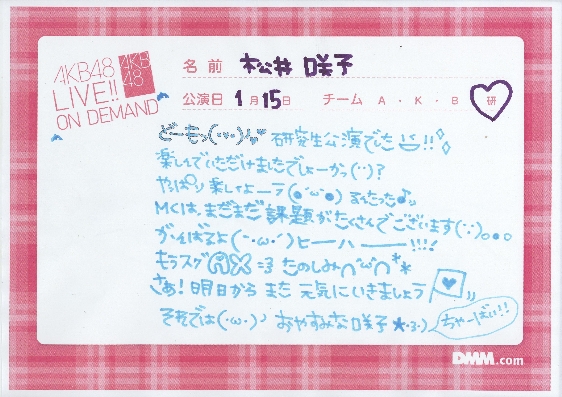 AKB48
LIVE!!
ON DEMAND
AKB
48
名前 松井 咲子
公演日 1月15日 チーム A・K・B 研
どーもっ(・ω・)ノ♥ 研究生公演でした!!
楽しんでいただけましたでしょーかっ(··)?
やっぱり楽しいよーう(●´ω`●)るんたった♪
MCは、まだまだ課題がたくさんでございます(;;)。。。
がんばるよ(`・ω・´)ヒーハー!!!!
もうスグAX=3 たのしみ∩´ω`∩**
さあ!明日からまた元気にいきましょう
それでは(・ω・)ノ おやすみな咲子★・3・)
ちゃーばい!!
DMM.com